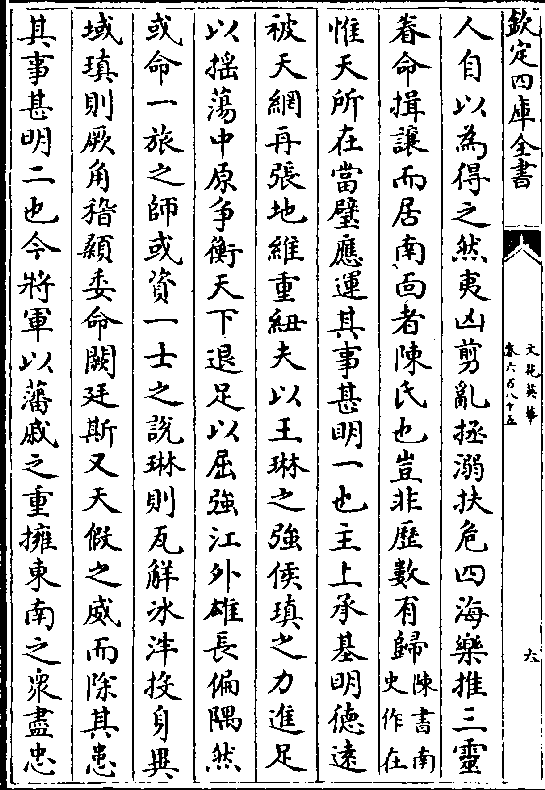 欽定四庫全書
文苑英華
卷六百八十五
六
人自以為得之然夷凶剪亂拯溺扶危四海樂推三靈
眷命揖讓而居南面者陳氏也豈非歷數有歸陳書南史作在
惟天所在當璧應運其事甚明一也主上承基明德逺
被天網再張地維重紐夫以王琳之強侯瑱之力進足
以揺蕩中原爭衡天下退足以屈強江外雄長偏隅然
或命一旅之師或資一士之説琳則瓦解冰泮投身異
域瑱則厥角稽顙委命闕廷斯又天假之威而除其患
其事甚明二也今將軍以藩戚之重擁東南之衆盡忠